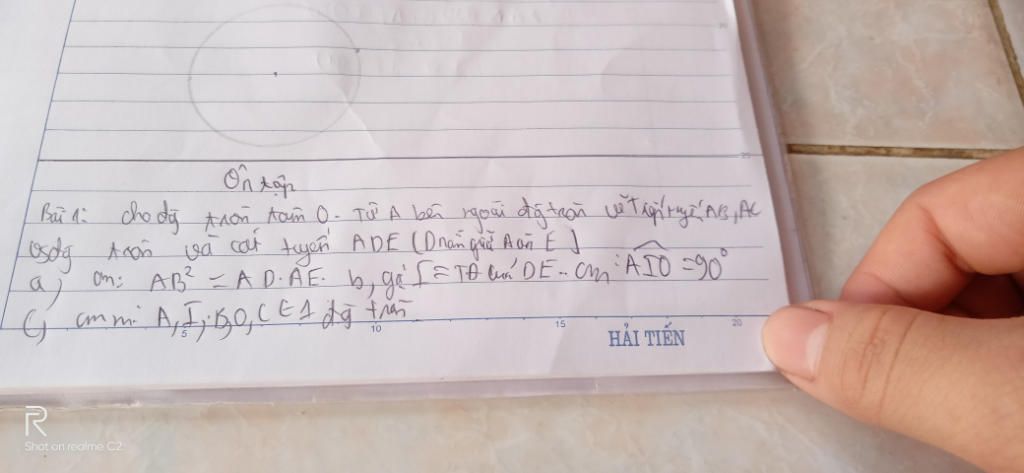 Ôn tập
Bài 1: cho đg tròn tâm O. Từ A bên ngoài đg tròn vẽ Tiếp tuyế AB, AC
đg tròn và cát tuyến ADE (D nằm giữa A và E)
a, cm: AB² = AD.AE. b, gọi I = TĐ của DE.. cm: AIO = 90°
C, cm m: A, I, B, O, C ∈ 1 đg tròn
5 10 15 20
HẢI TIẾN
R
Shot on realme C2